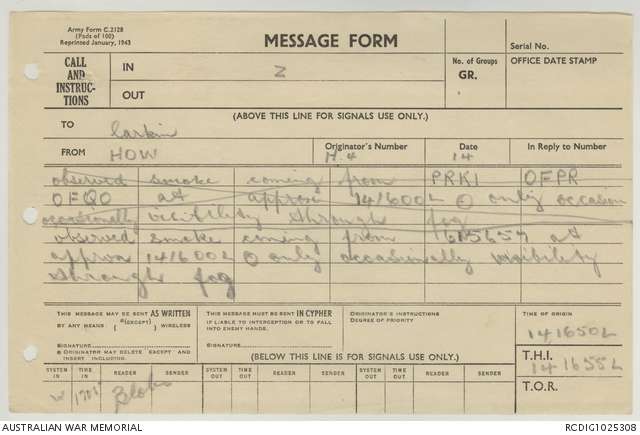 Army Form C.2128
(Pads of 100)
Reprinted January, 1943
MESSAGE FORM
Serial No.
CALL
AND
INSTRUC-
TIONS
IN
Z
No. of Groups
GR.
OFFICE DATE STAMP
OUT
(ABOVE THIS LINE FOR SIGNALS USE ONLY.)
TO
Larkin
FROM
HOW
Originator's Number
H.4
Date
14
In Reply to Number
observed smoke coming from PRK1 OFPR
OFQO at approx 141600L only occasion
occasionally visibility through fog
observed smoke coming from 615657 at
approx 141600L only occasionally visibility
through fog
THIS MESSAGE MAY BE SENT AS WRITTEN
BY ANY MEANS (EXCEPT) WIRELESS
SIGNATURE
ORIGINATOR MAY DELETE EXCEPT AND
INSERT INCLUDING.
THIS MESSAGE MUST BE SENT IN CYPHER
IF LIABLE TO INTERCEPTION OR TO FALL
INTO ENEMY HANDS.
SIGNATURE
ORIGINATOR'S INSTRUCTIONS
DEGREE OF PRIORITY
TIME OF ORIGIN
141650L
(BELOW THIS LINE IS FOR SIGNALS USE ONLY.)
T.H.I.
141655L
SYSTEM IN
TIME IN
READER
SENDER
SYSTEM OUT
TIME OUT
READER
SENDER
SYSTEM OUT
TIME OUT
READER
SENDER
T.O.R.
1705
AUSTRALIAN WAR MEMORIAL
RCDIG1025308